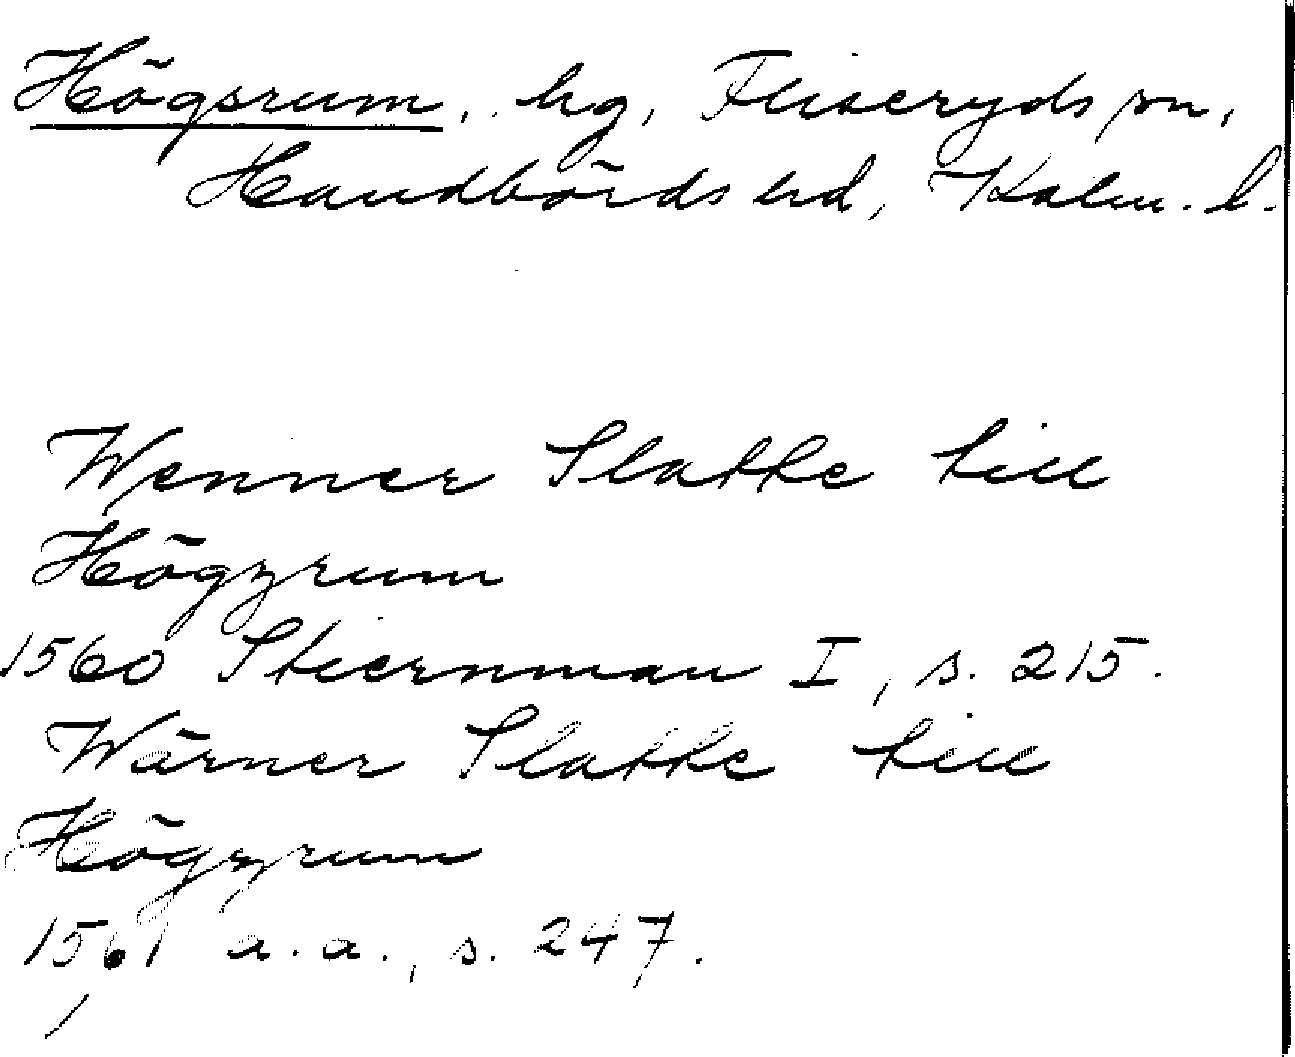 Högsrum, hg, Fliseryds sn,
Handbörds hd, Kalm. l.
Wenner Slatke till
Högzrum
1560 Stiernman I, s. 215.
Wärner Slatke till
Högzrum
1561 a.a., s. 247.